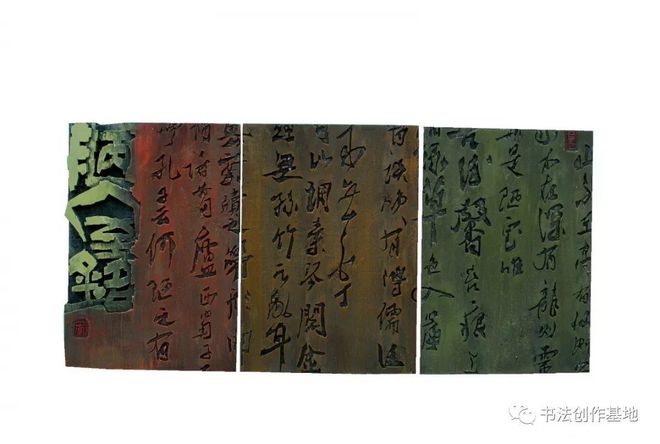 山不在高有仙則名
水不在深有龍則靈
斯是陋室惟
吾德馨苔痕上
階綠草色入簾
有鴻儒往
來無白丁
可以調素琴閱金
經無絲竹之亂耳
無案牘之勞形南
陽諸葛廬西蜀子
孔子云何陋之有
陋室銘
书法创作基地